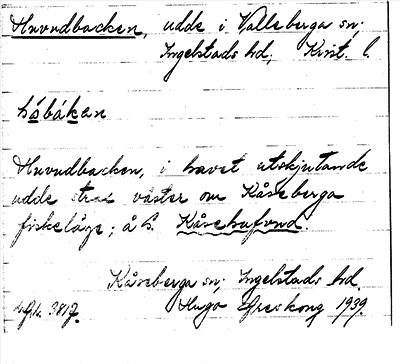 Huvudbacken, udde i Valleberga sn;
Ingelstads hd, Krist. l.
hôbákan
Huvudbacken, i havet utskjutande
udde strax väster om Kåseberga
fiskeläge; å S. Kåsehufvud.
Kåseberga sn; Ingelstads hd.
Hugo Areskoug 1939.